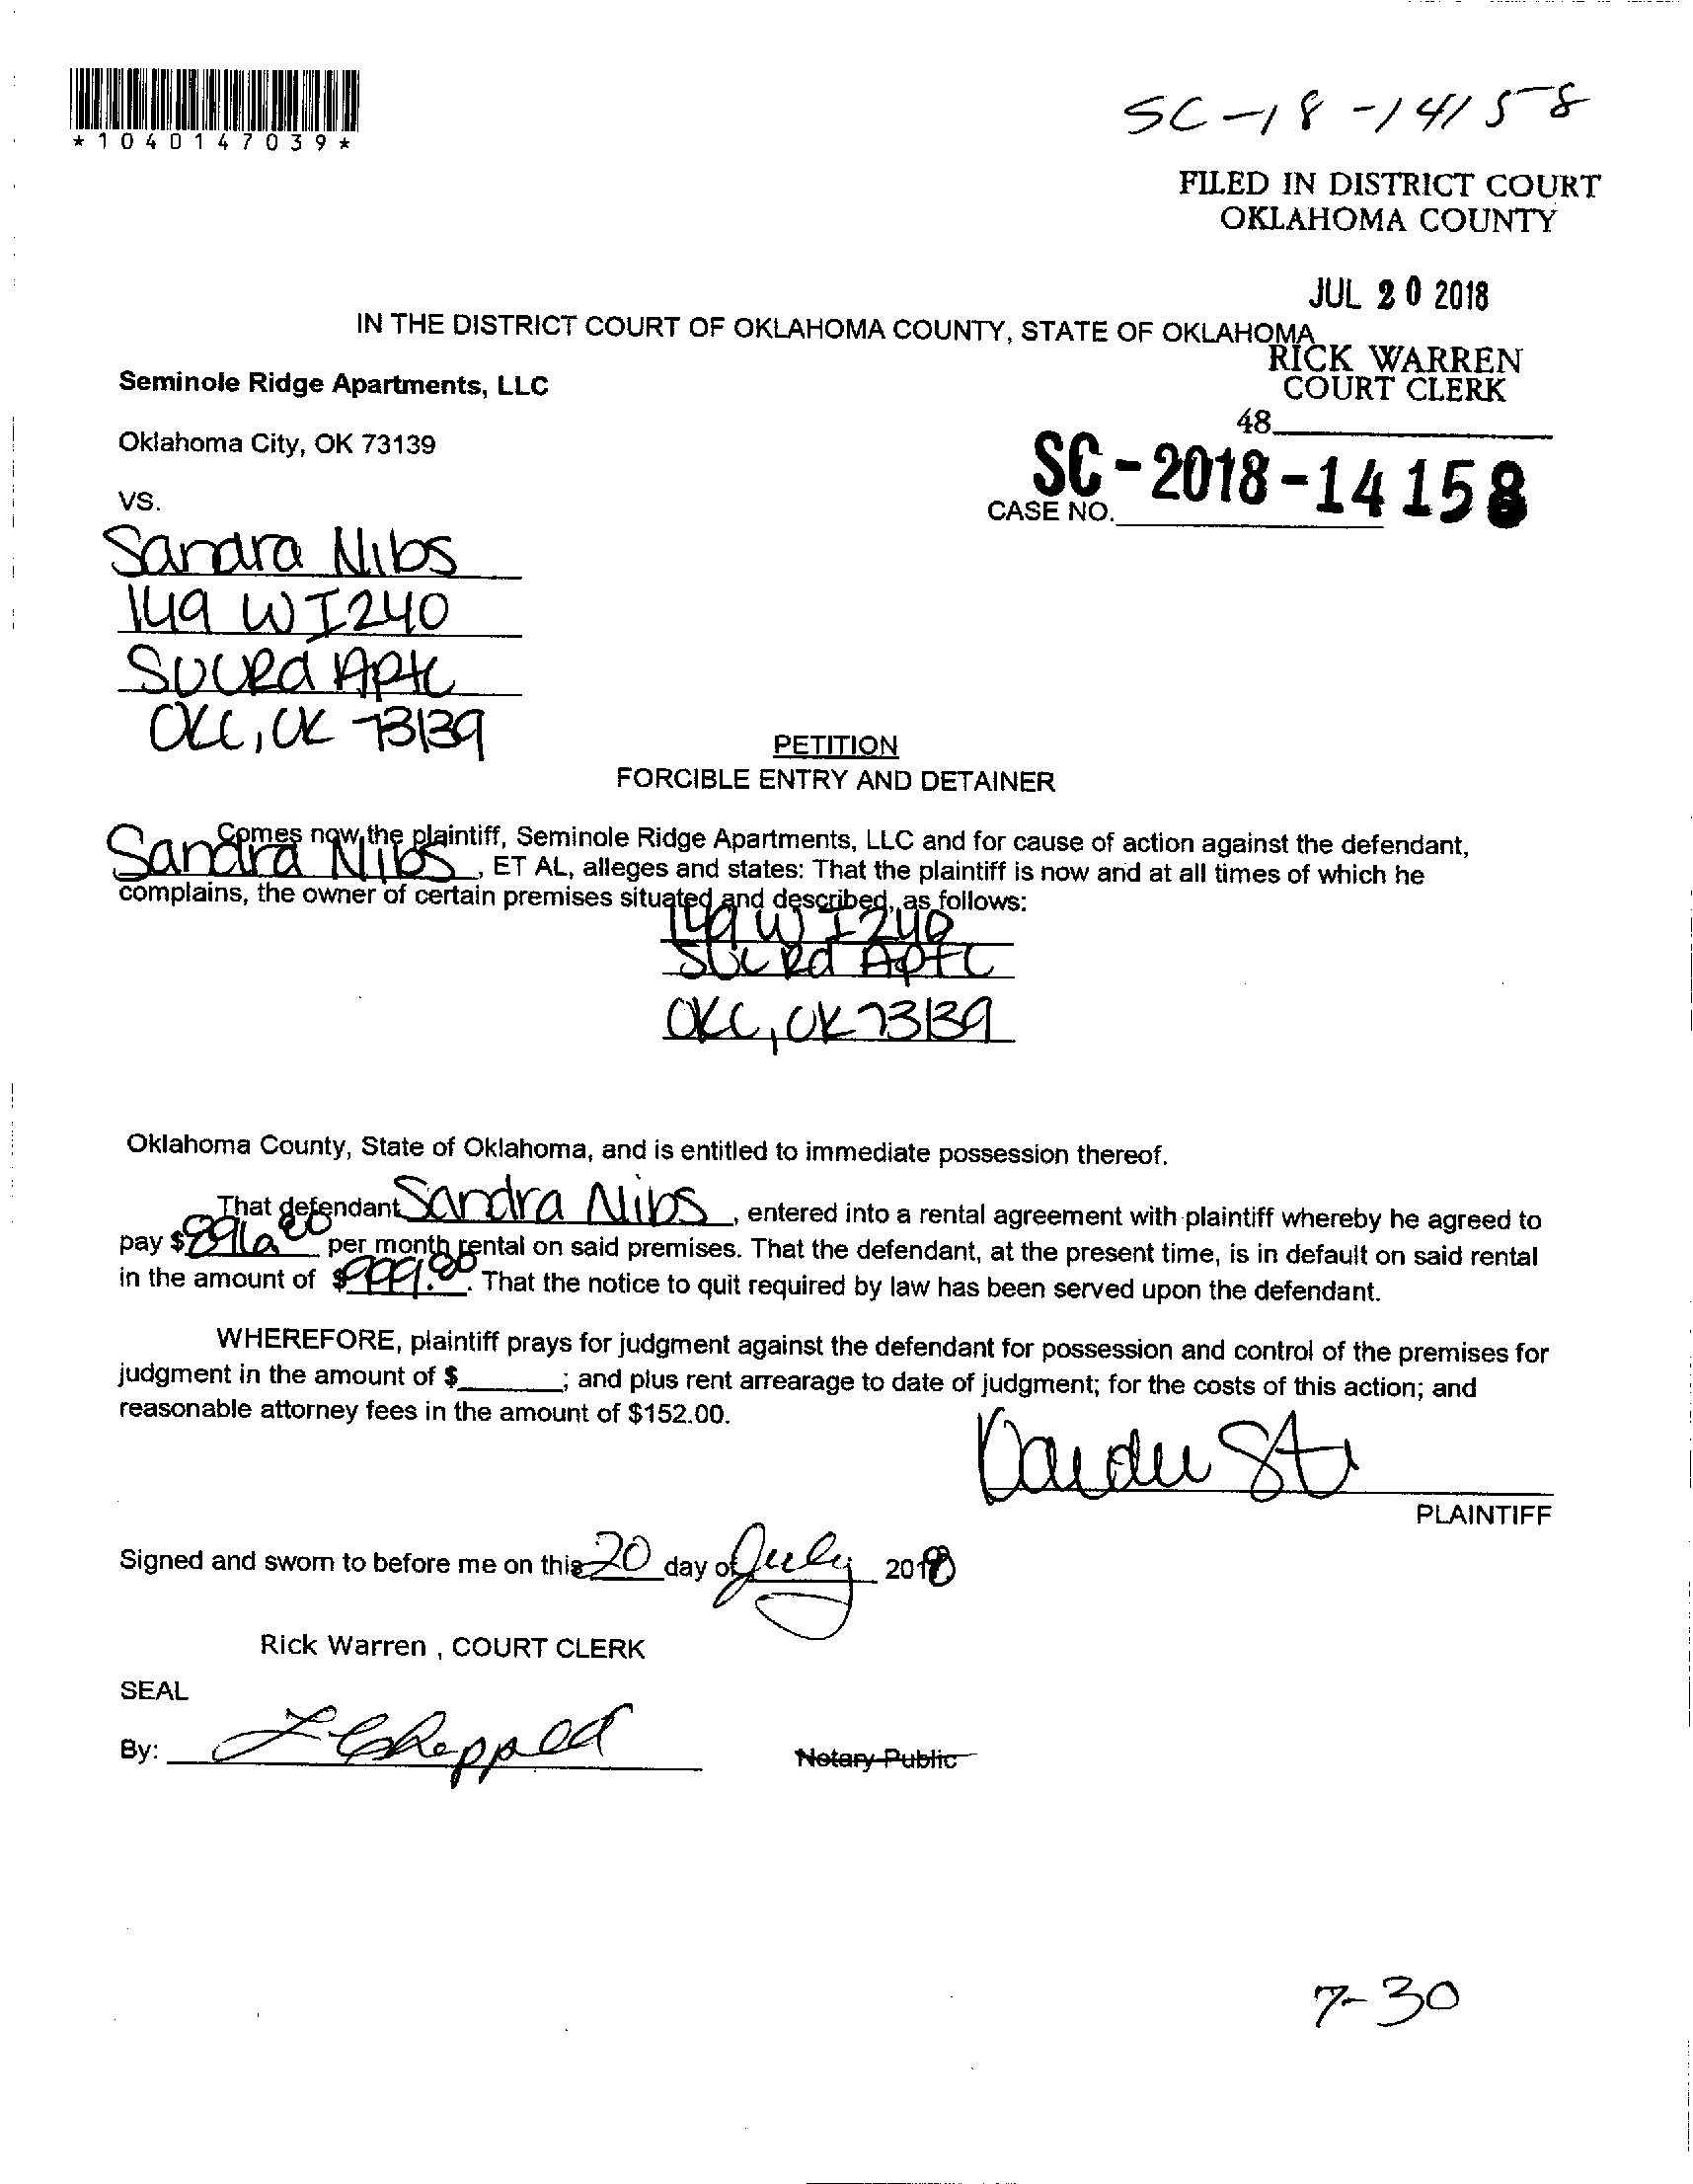 *1040147039*
SC-18-14158
FILED IN DISTRICT COURT
OKLAHOMA COUNTY
JUL 20 2018
IN THE DISTRICT COURT OF OKLAHOMA COUNTY, STATE OF OKLAHOMA
RICK WARREN
COURT CLERK
Seminole Ridge Apartments, LLC
48
Oklahoma City, OK 73139
SC-2018-14158
CASE NO.
VS.
Sandra Nibs
149 W I240
Rd Apt C
OKC, OK 73139
PETITION
FORCIBLE ENTRY AND DETAINER
Comes now, the plaintiff, Seminole Ridge Apartments, LLC and for cause of action against the defendant,
Sandra Nibs, ET AL, alleges and states: That the plaintiff is now and at all times of which he
complains, the owner of certain premises situated and described, as follows:
149 W I240
Rd Apt C
OKC, OK 73139
Oklahoma County, State of Oklahoma, and is entitled to immediate possession thereof.
That defendant Sandra Nibs, entered into a rental agreement with plaintiff whereby he agreed to
pay $896.00 per month rental on said premises. That the defendant, at the present time, is in default on said rental
in the amount of $999.00. That the notice to quit required by law has been served upon the defendant.
WHEREFORE, plaintiff prays for judgment against the defendant for possession and control of the premises for
judgment in the amount of $______; and plus rent arrearage to date of judgment; for the costs of this action; and
reasonable attorney fees in the amount of $152.00.
PLAINTIFF
Signed and sworn to before me on this 20 day of July 2018
Rick Warren , COURT CLERK
SEAL
By:
Notary Public
7-30